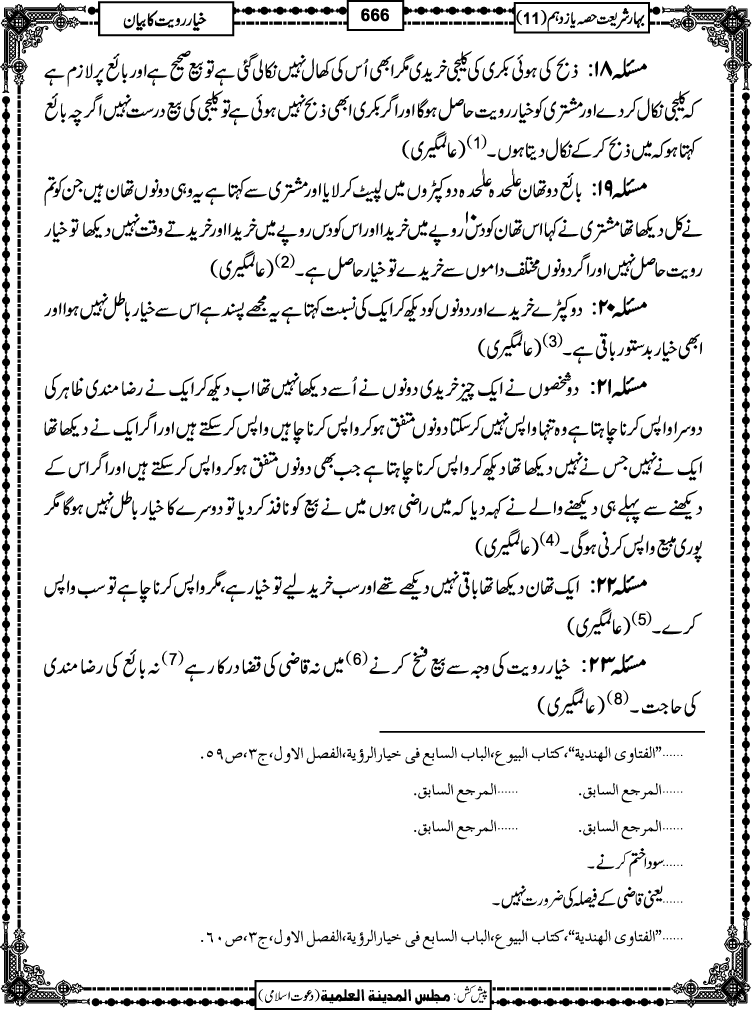 بہار شریعت حصہ یازدہم (11)
666
خیار رویت کا بیان
مسئلہ ۱۸: ذبح کی ہوئی بکری کی کلیجی خریدی مگر ابھی اُس کی کھال نہیں نکالی گئی ہے تو بیع صحیح ہے اور بائع پر لازم ہے
کہ کلیجی نکال کر دے اور مشتری کو خیار رویت حاصل ہوگا اور اگر بکری ابھی ذبح نہیں ہوئی ہے تو کلیجی کی بیع درست نہیں اگرچہ بائع
کہتا ہو کہ میں ذبح کر کے نکال دیتا ہوں۔(1) (عالمگیری)
مسئلہ ۱۹: بائع دو تھان علٰحدہ علٰحدہ دو کپڑوں میں لپیٹ کر لایا اور مشتری سے کہتا ہے یہ وہی دونوں تھان ہیں جن کو تم
نے کل دیکھا تھا مشتری نے کہا اس تھان کو دس۱۰ روپے میں خریدا اور اس کو دس روپے میں خریدا اور خریدتے وقت نہیں دیکھا تو خیار
رویت حاصل نہیں اور اگر دونوں مختلف داموں سے خریدے تو خیار حاصل ہے۔(2) (عالمگیری)
مسئلہ ۲۰: دو کپڑے خریدے اور دونوں کو دیکھ کر ایک کی نسبت کہتا ہے یہ مجھے پسند ہے اس سے خیار باطل نہیں ہوا اور
ابھی خیار بدستور باقی ہے۔(3) (عالمگیری)
مسئلہ ۲۱: دو شخصوں نے ایک چیز خریدی دونوں نے اُسے دیکھا نہیں تھا اب دیکھ کر ایک نے رضا مندی ظاہر کی
دوسرا واپس کرنا چاہتا ہے وہ تنہا واپس نہیں کر سکتا دونوں متفق ہو کر واپس کرنا چاہیں واپس کر سکتے ہیں اور اگر ایک نے دیکھا تھا
ایک نے نہیں جس نے نہیں دیکھا تھا دیکھ کر واپس کرنا چاہتا ہے جب بھی دونوں متفق ہو کر واپس کر سکتے ہیں اور اگر اس کے
دیکھنے سے پہلے ہی دیکھنے والے نے کہہ دیا کہ میں راضی ہوں میں نے بیع کو نافذ کر دیا تو دوسرے کا خیار باطل نہیں ہوگا مگر
پوری مبیع واپس کرنی ہوگی۔(4) (عالمگیری)
مسئلہ ۲۲: ایک تھان دیکھا تھا باقی نہیں دیکھے تھے اور سب خرید لیے تو خیار ہے، مگر واپس کرنا چاہے تو سب واپس
کرے۔(5) (عالمگیری)
مسئلہ ۲۳: خیار رویت کی وجہ سے بیع فسخ کرنے(6) میں نہ قاضی کی قضا درکار ہے(7) نہ بائع کی رضا مندی
کی حاجت۔(8) (عالمگیری)
......"الفتاوی الھندیة"، کتاب البیوع، الباب السابع فی خیار الرؤیة، الفصل الاول، ج۳، ص۵۹.
......المرجع السابق. ......المرجع السابق.
......المرجع السابق. ......المرجع السابق.
......سودا ختم کرنے۔
......یعنی قاضی کے فیصلہ کی ضرورت نہیں۔
......"الفتاوی الھندیة"، کتاب البیوع، الباب السابع فی خیار الرؤیة، الفصل الاول، ج۳، ص۶۰.
پیش کش: مجلس المدینة العلمیة (دعوت اسلامی)